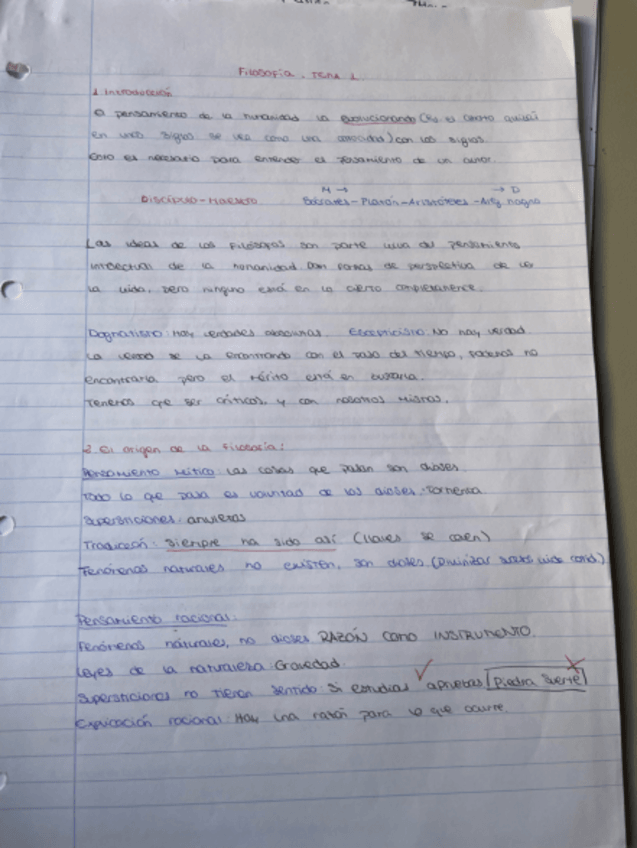 Filosofía. Tema 1.
1. Introducción
El pensamiento de la humanidad ha evolucionando (Es el
en unos siglos se vea como una atrocidad) con los siglos.
Esto es necesario para entender el pensamiento de un autor.
M → → D
Discípulo - Maestro Sócrates - Platón - Aristóteles - magno
Las ideas de los filósofos son parte del pensamiento
intelectual de la humanidad. Dan formas de perspectiva de ver
la vida, pero ninguno está en lo cierto completamente.
Dogmatismo: Hay verdades absolutas. Escepticismo: No hay verdad
La verdad se va encontrando con el paso del tiempo, podemos no
encontrarla pero el mérito está en buscarla.
Tenemos que ser críticos, y con nosotros mismos.
2. El origen de la filosofía:
Pensamiento mítico: Las cosas que pasan son dioses.
Todo lo que pasa es voluntad de los dioses: Tormenta
Supersticiones: amuletos
Tradición: Siempre ha sido así (llaves se caen)
Fenómenos naturales no existen, son dioses. (Divinizar
Pensamiento racional:
Fenómenos naturales, no dioses RAZÓN como INSTRUMENTO.
Leyes de la naturaleza: Gravedad.
Supersticiones no tienen sentido: Si estudias apruebas ✓ Piedra suerte ✗
Explicación racional: Hay una razón para lo que ocurre.